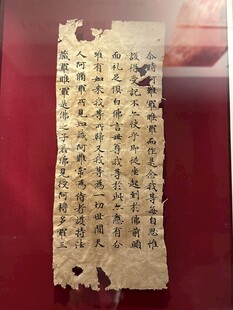 尒時阿難羅睺羅而作是念我等每自思惟
設得受記不亦快乎即從座起到於佛前頭
面礼足俱白佛言世尊我等於此亦應有分
唯有如來我等所歸又我等為一切世間天
人阿脩羅所見知識阿難常為侍者護持法
藏羅睺羅是佛之子若佛見授阿耨多羅三